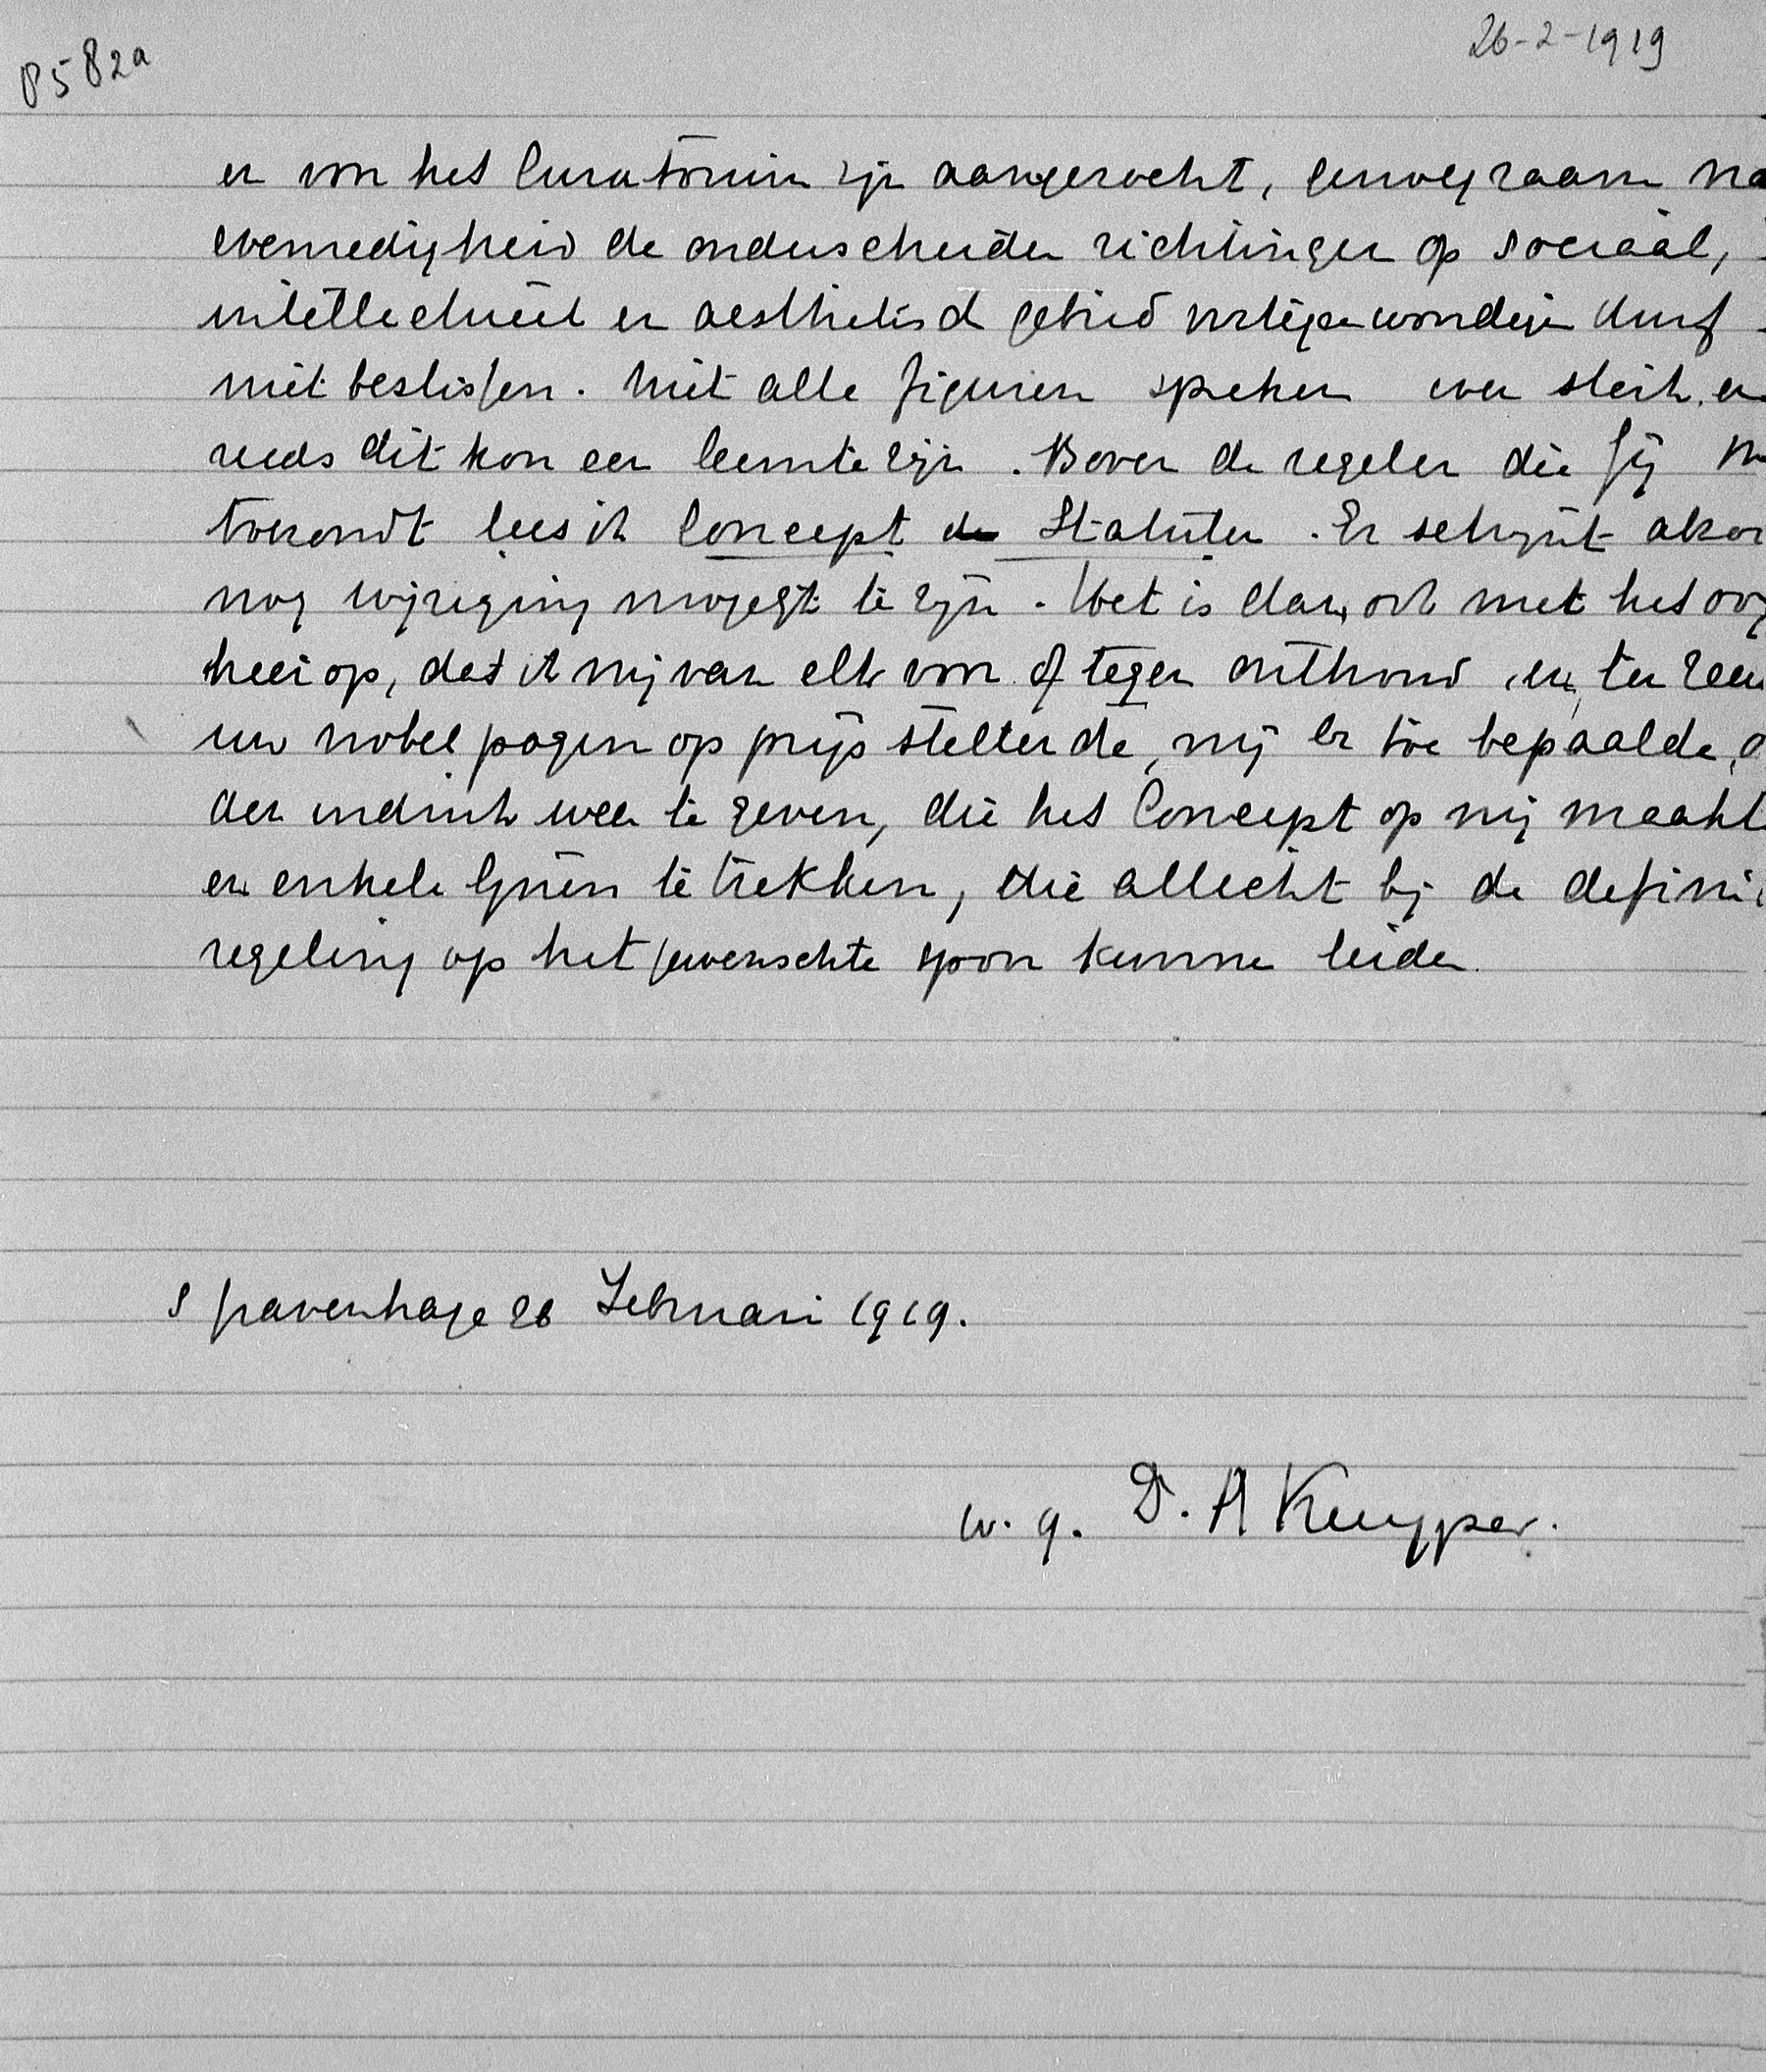 P582a
26-2-1919
en voor het Curatorium zijn aangezocht, genoegzaam na
evenredigheid de onderscheiden richtingen op sociaal,
intellectueel en aesthetisch gebied vertegenwoordigen durf
niet beslissen. Niet alle figuren spreken even sterk en
reeds dit kon een leemte zijn. Boven de regelen die Gij m
toezondt lees ik Concept Statuten. Er schijnt alzoo
nog wijziging mogelijk te zijn. Het is dan ook met het oog
hierop, dat ik mij van elk voor of tegen onthoud en, ten zeer
uw nobel pogen op prijs stellende, mij er toe bepaalde, o
den indruk weer te geven, die het Concept op mij maakt
en enkele lijnen te trekken, die allicht bij de defini
regeling op het gewenschte spoor kunnen leiden.
s Gravenhage 26 Februari 1919.
w. g. D. A Kuyper.